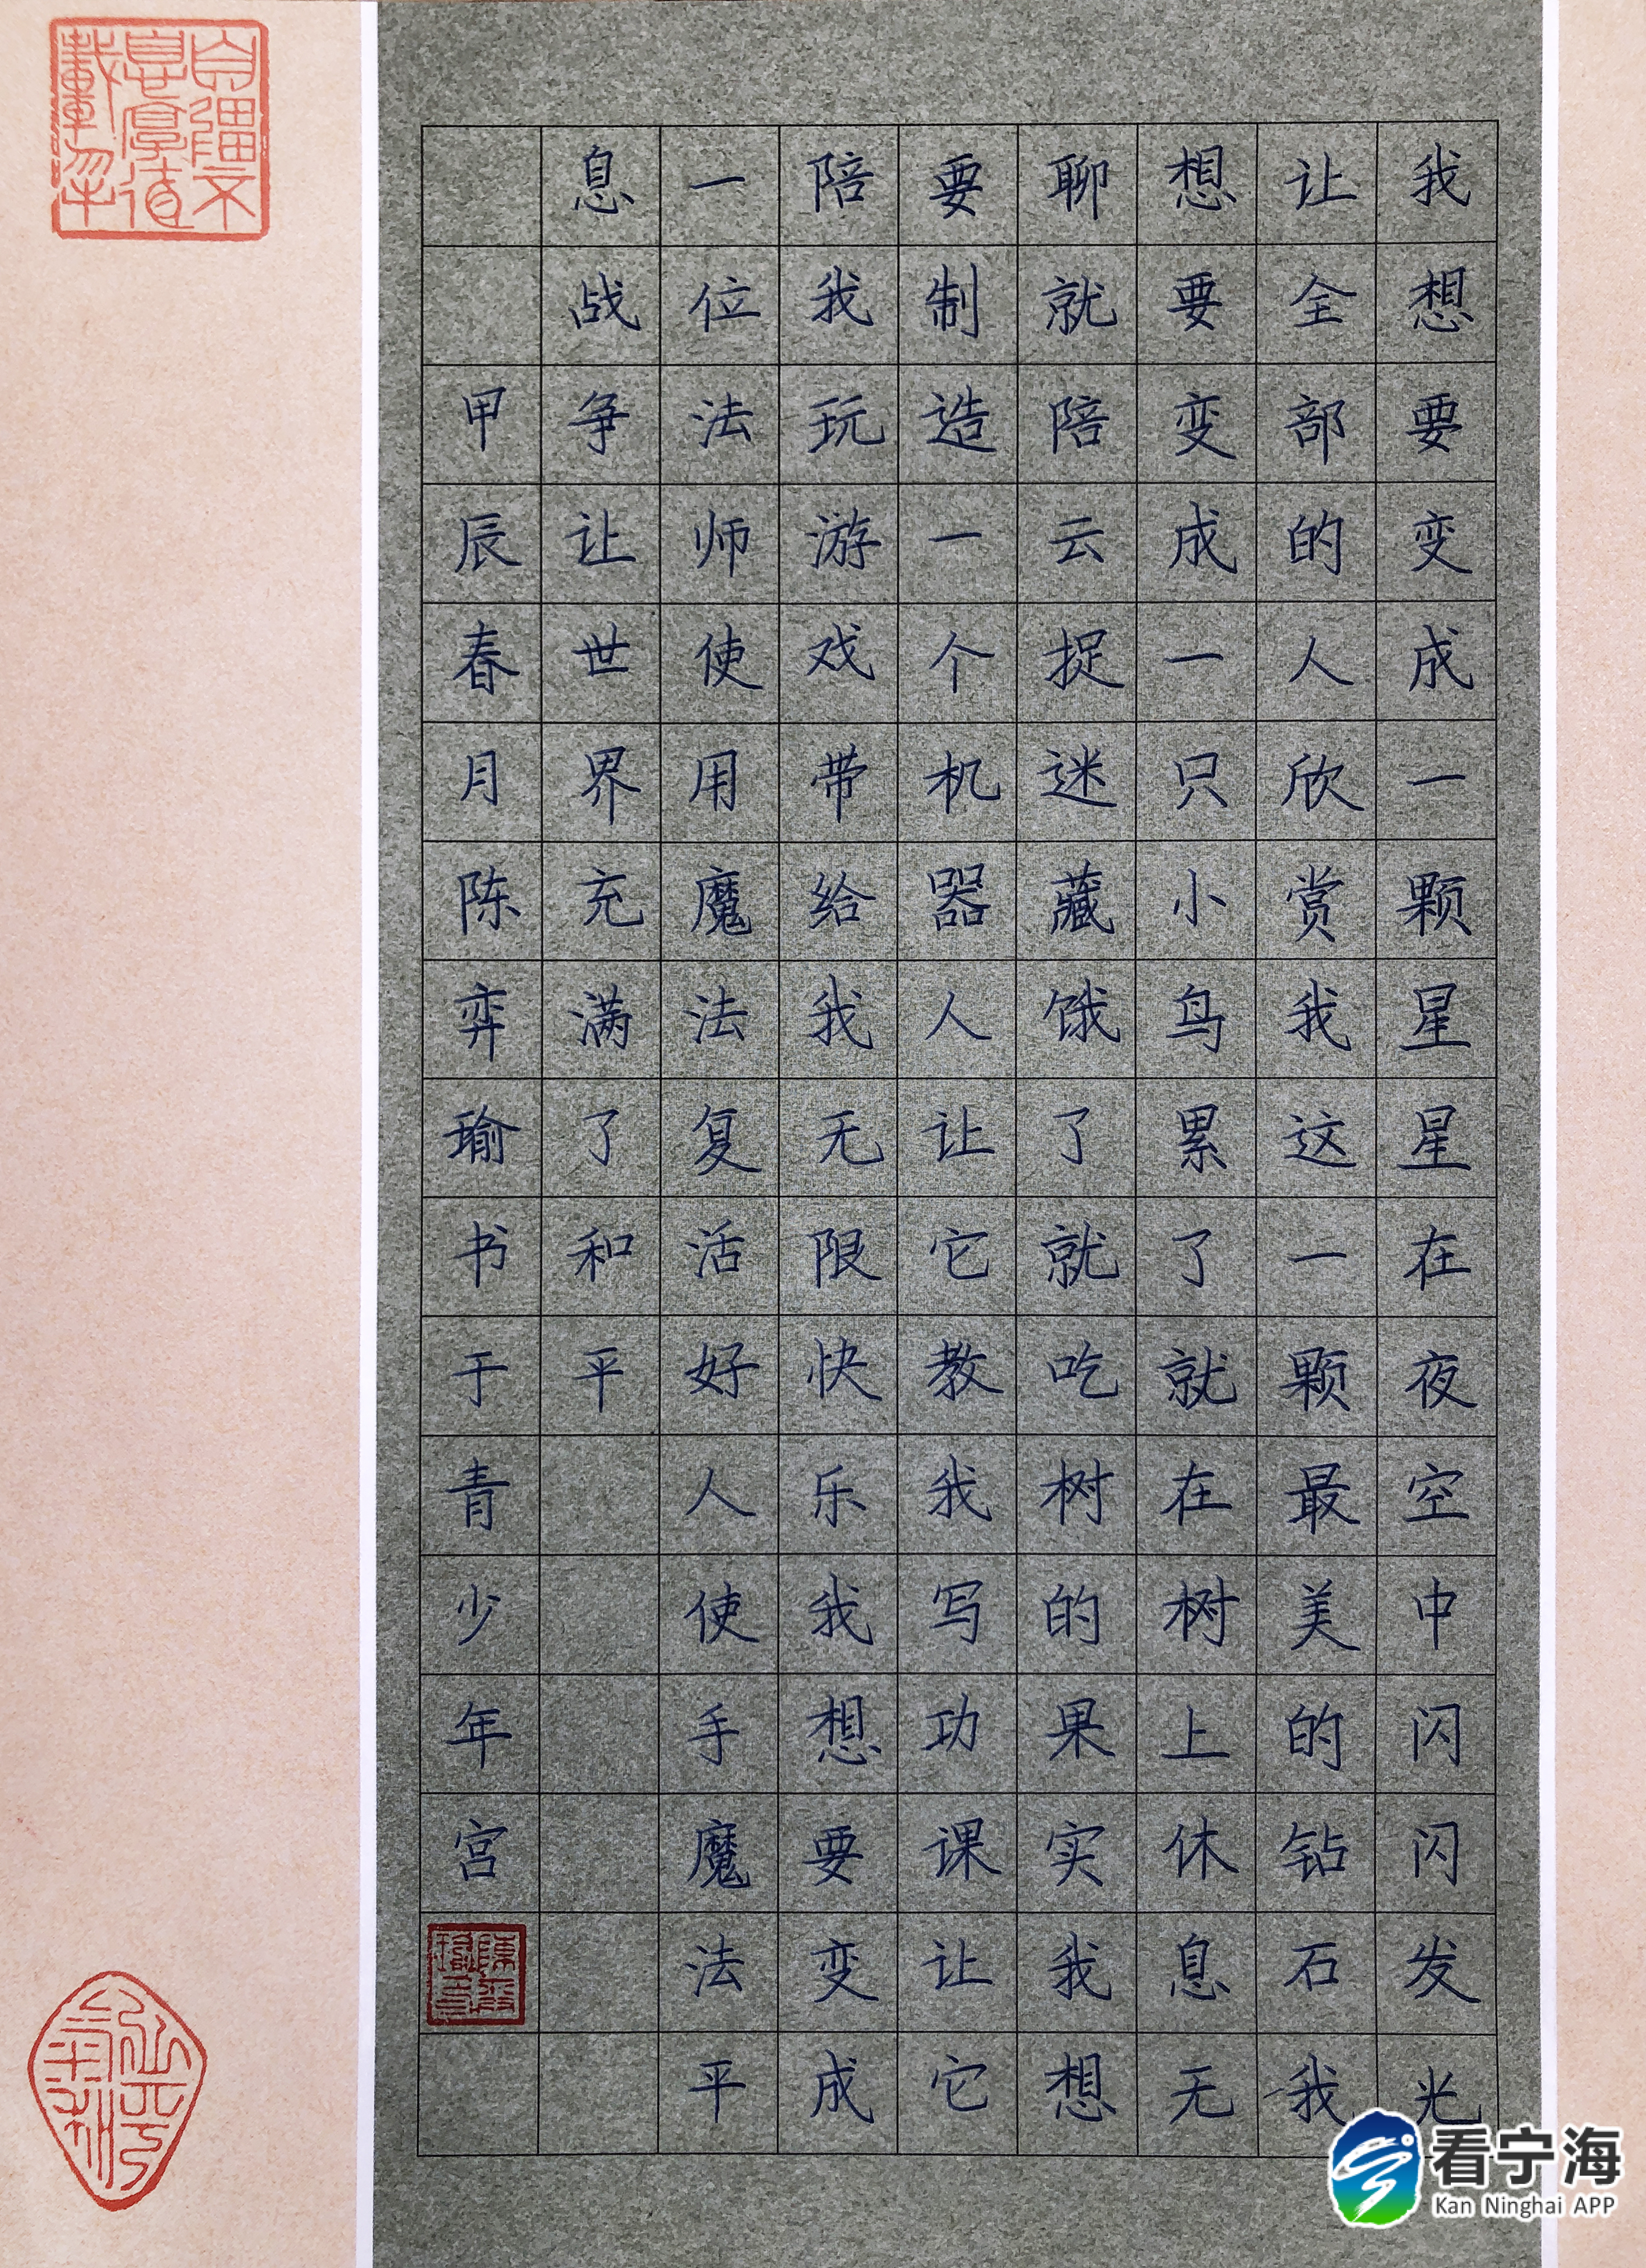 我想要变成一颗星星在夜空中闪闪发光
让全部的人欣赏我这一颗最美的钻石我
想要变成一只小鸟累了就在树上休息无
聊就陪云捉迷藏饿了就吃树的果实我想
要制造一个机器人让它教我写功课让它
陪我玩游戏带给我无限快乐我想要变成
一位法师使用魔法复活好人使手魔法平
息战争让世界充满了和平
甲辰春月陈弈瑜书于青少年宫
自彊不
息厚德
载物
看宁海
Kan Ninghai APP